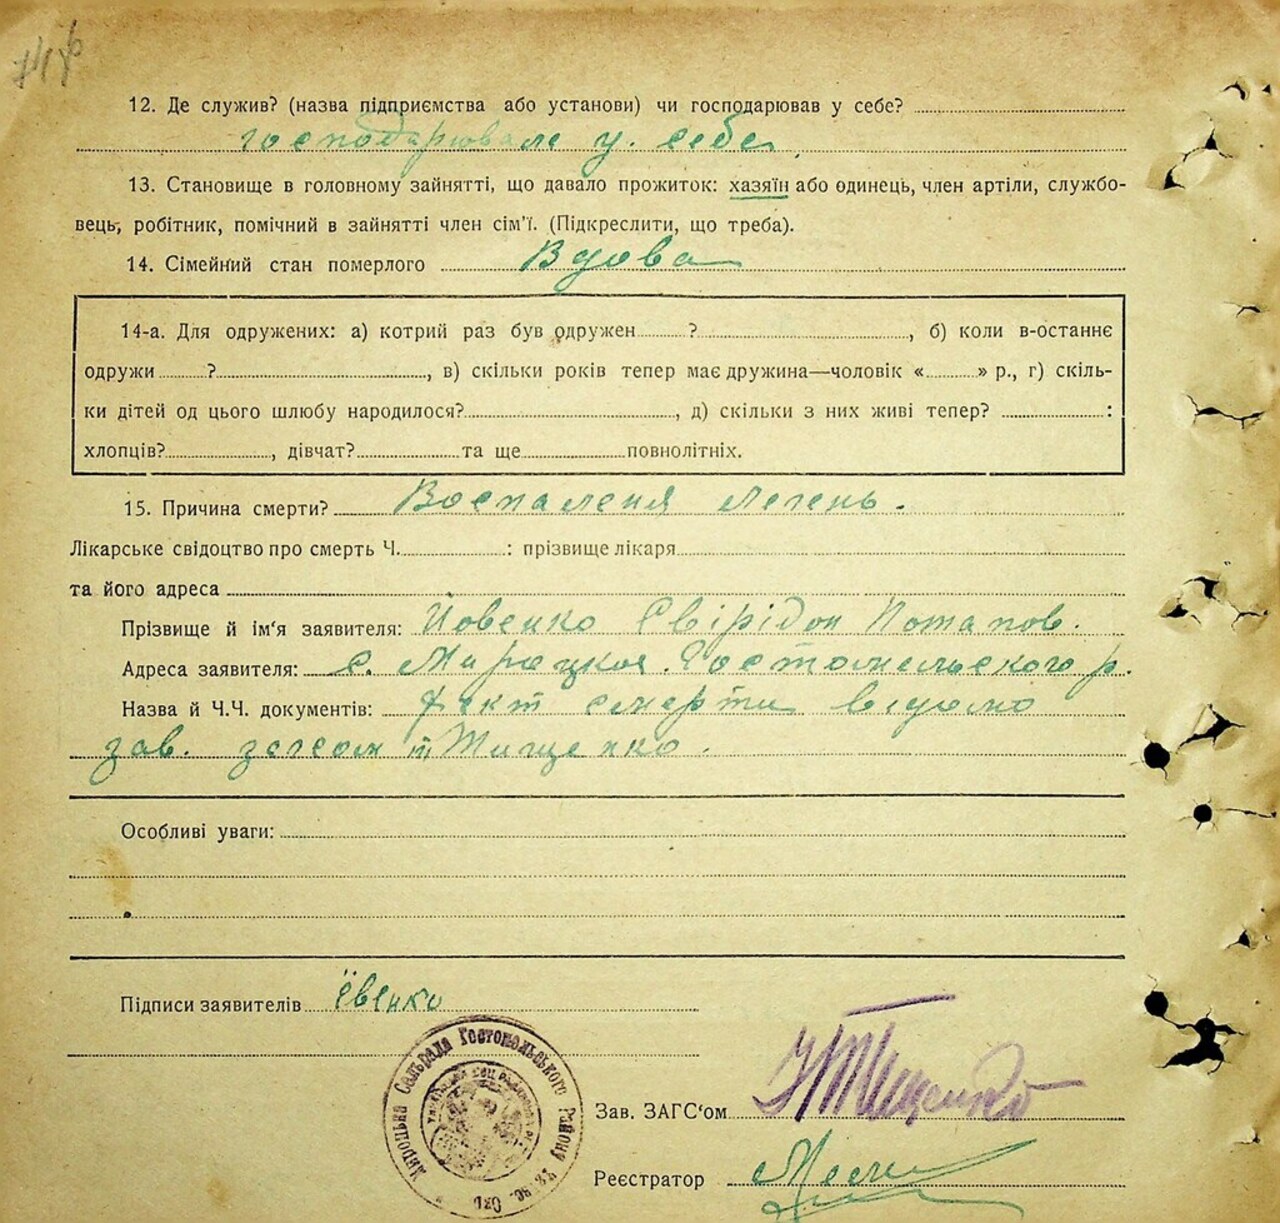 12. Де служив? (назва підприємства або установи) чи господарював у себе?
господарювала у. себе.
13. Становище в головному зайнятті, що давало прожиток: хазяїн або одинець, член артіли, службо-
вець, робітник, помічний в зайнятті член сім'ї. (Підкреслити, що треба).
14. Сімейний стан померлого Вдова
14-а. Для одружених: а) котрий раз був одружен ?, б) коли в-останнє
одружи ?, в) скільки років тепер має дружина—чоловік « » р., г) скіль-
ки дітей од цього шлюбу народилося?, д) скільки з них живі тепер? :
хлопців?, дівчат? та ще повнолітніх.
15. Причина смерти? Воспаленія легень.
Лікарське свідоцтво про смерть Ч. : прізвище лікаря
та його адреса
Прізвище й ім'я заявителя: Йовенко Свірідон Потапов.
Адреса заявителя: с. Мироцкоє. Гостомельського р.
Назва й Ч.Ч. документів: Факт смерти відомо
зав. загсом т Тищенко.
Особливі уваги:
Підписи заявителів Ёвенко
Мироцька Сельрада Гостомольського Району
Зав. ЗАГС'ом Тищенко
Реєстратор